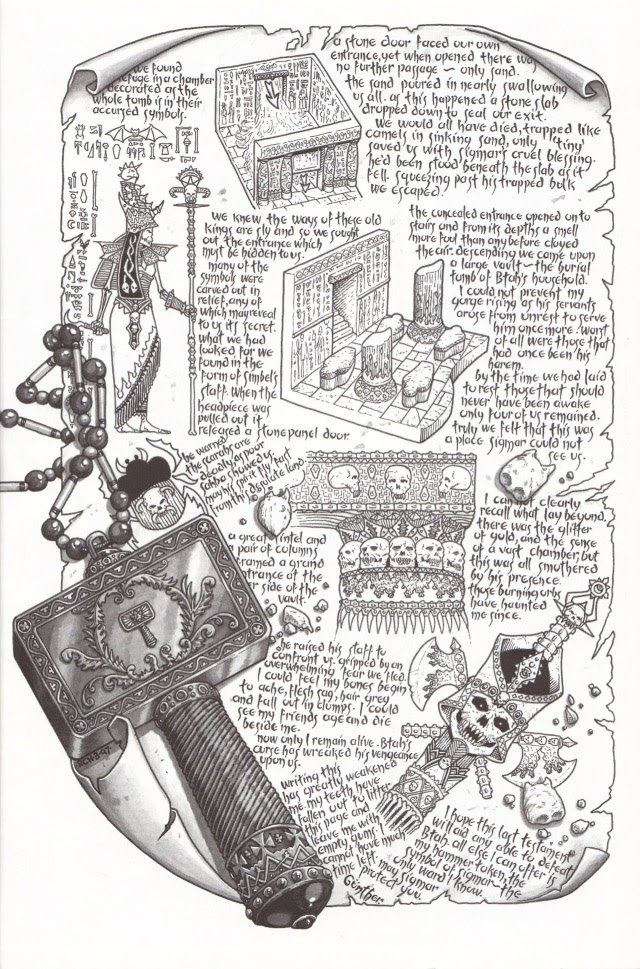 we found
refuge in a chamber
decorated as the
whole tomb is in their
accursed symbols.
a stone door faced our own
entrance, yet when opened there was
no further passage ~ only sand.
the sand poured in nearly swallowing
us all. as this happened a stone slab
dropped down to seal our exit.
we would all have died, trapped like
camels in sinking sand, only 'tiny'
saved us with sigmar's cruel blessing.
he'd been stood beneath the slab as it
fell. squeezing past his trapped bulk
we escaped.
we knew the ways of these old
kings are sly and so we sought
out the entrance which
must be hidden to us.
many of the
symbols were
carved out in
relief, any of
which may reveal
to us its secret.
what we had
looked for we
found in the
form of simbel's
staff. when the
headpiece was
pulled out it
released a stone panel door.
the concealed entrance opened onto
stairs and from its depths a smell
more foul than any before cloyed
the air. descending we came upon
a large vault ~ the burial
tomb of Btah's household.
I could not prevent my
gorge rising as his servants
arose from unrest to serve
him once more. worst
of all were those that
had once been his
harem.
by the time we had laid
to rest those that should
never have been awake
only four of us remained.
truly we felt that this was
a place sigmar could not
see us.
be warned
the scarabs are
deadly as poor
sabbo showed us.
may his spirit fly fast
from this desolate land.
a great lintel and
a pair of columns
framed a grand
entrance at the
far side of the
vault.
I can not clearly
recall what lay beyond.
there was the glitter
of gold, and the sense
of a vast chamber, but
this was all smothered
by his presence.
those burning orbs
have haunted
me since.
he raised his staff to
confront us. gripped by an
overwhelming fear we fled.
I could feel my bones begin
to ache, flesh sag, hair grey
and fall out in clumps. I could
see my friends age and die
beside me.
now only I remain alive. Btah's
curse has wreaked his vengeance
upon us.
writing this
has greatly weakened
me. my teeth have
fallen out to litter
this page and
leave me with
empty gums. I
cannot have much
time left. may sigmar
protect you.
Günther
I hope this last testament
will aid any able to defeat
Btah. all else I can offer is
my hammer token, the
symbol of sigmar ~ the
only ward I know.